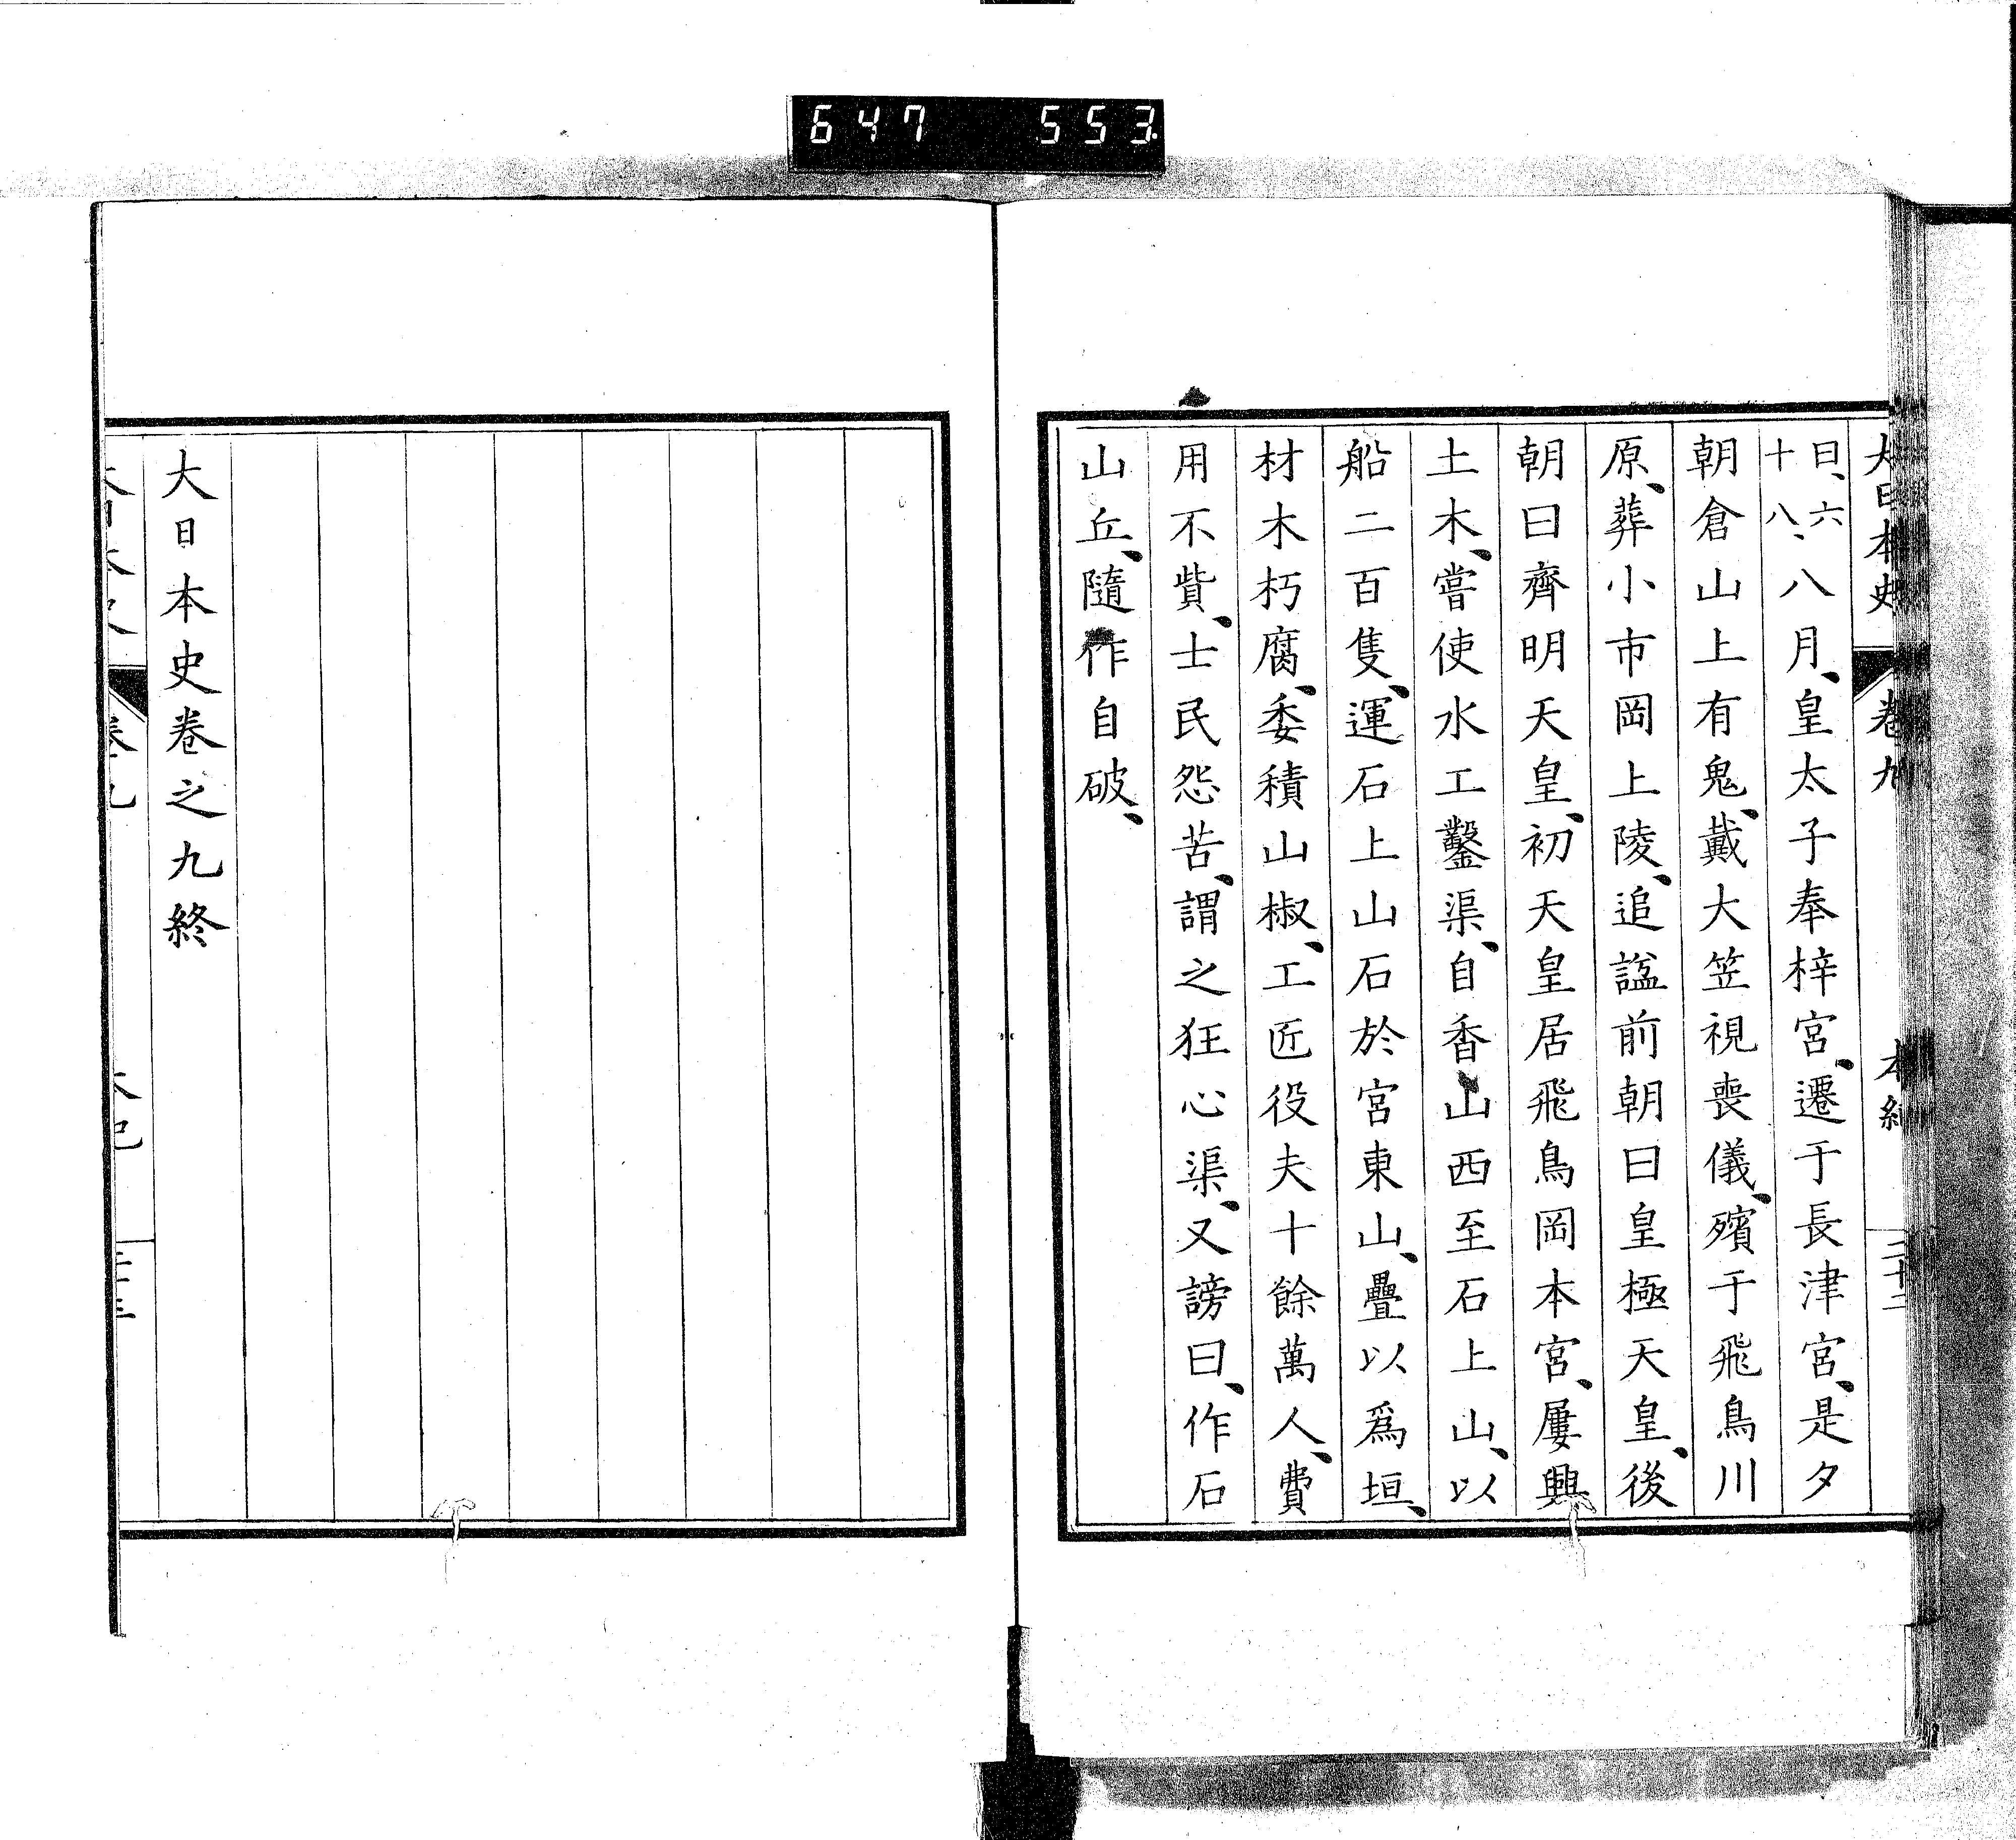 647 553
大日本史 卷九 本紀 二十二
日、六
十八、八月、皇太子奉梓宮、遷于長津宮、是夕
朝倉山上有鬼、戴大笠視喪儀、殯于飛鳥川
原、葬小市岡上陵、追諡前朝曰皇極天皇、後
朝曰齊明天皇、初天皇居飛鳥岡本宮、屢興
土木、嘗使水工鑿渠、自香山西至石上山、以
船二百隻、運石上山石於宮東山、疊以爲垣、
材木朽腐、委積山椒、工匠役夫十餘萬人、費
用不貲、士民怨苦、謂之狂心渠、又謗曰、作石
山丘、隨作自破、
大日本史卷之九終